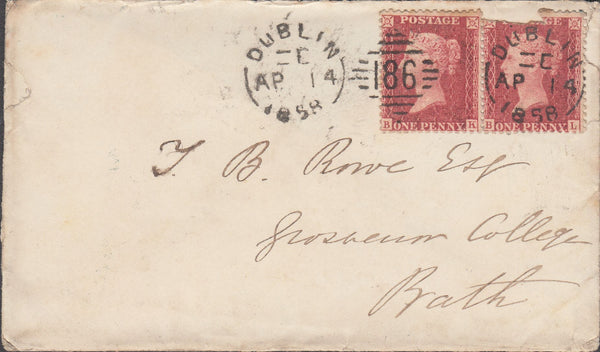 DUBLIN
E
AP 14
1858
186
POSTAGE
B ONE PENNY K
DUBLIN
E
AP 14
1858
GE
B ONE PENNY L
T. B. Rowe Esq
Grosvenor College
Bath